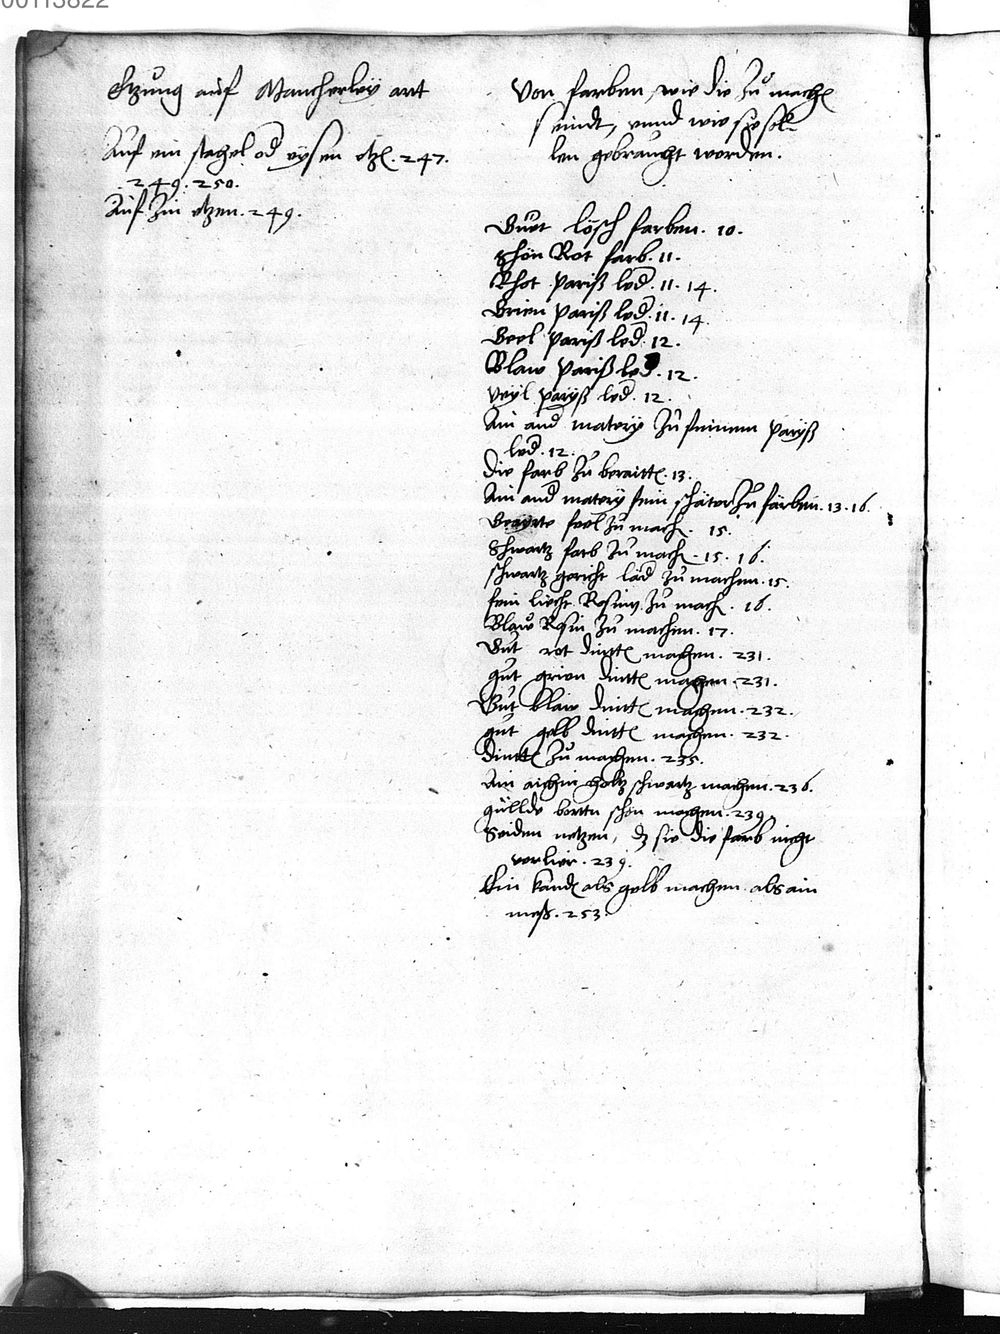 00113822
Etzung auf Mancherley art
Auf ein stachel od eysen etzē. 247.
249. 250.
Auf Zin etzen. 249.
Von farben, wie die Zu machē
seindt, vnnd wie sye sol-
len gebraucht worden.
Guet lösch farben. 10.
Schön Rot farb. 11.
Rhot pariß led. 11. 14.
Grien pariß led. 11. 14.
Geel pariß led. 12.
Blaw pariß led. 12.
Veyl paryß led. 12.
Ain and matery Zu feinem paryß
led. 12.
Die farb Zu beraittē. 13.
Ain and matery fein schäter Zu färben. 13. 16.
feel Zu mach. 15.
Schwartz farb Zu mach. 15. 16.
schwartz gericht läd Zu machen. 15.
fein liecht Rosin Zu mach. 16.
Blaw Rosin Zu machen. 17.
Gut rot dinttē machen. 231.
gut grien dinttē machen. 231.
Gut blaw dinttē machen. 232.
gut gelb dinttē machen. 232.
Dinttē Zu machen. 235.
Ain aichin holtz schwartz machen. 236.
güllde bortten schön machen. 239
Seiden netzen, dz sie die farb nicht
verlier. 239.
Ein kandē als gelb machen als ain
meß. 253.